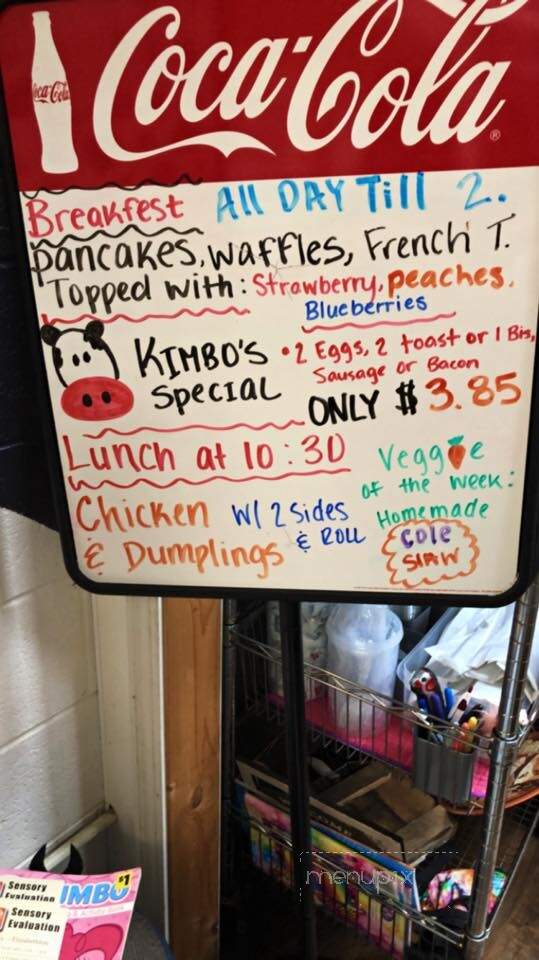 Coca-Cola
Coca-Cola
Breakfest All DAY Till 2.
pancakes, waffles, French T.
Topped with: Strawberry, peaches,
Blueberries
KIMBO'S • 2 Eggs, 2 toast or 1 Bis,
Special Sausage or Bacon
ONLY $3.85
Lunch at 10:30
Veggie
of the week:
Homemade
Cole
Slaw
Chicken W/ 2 Sides
& Dumplings & ROLL
Sensory
Evaluation
Sensory
Evaluation
$1
menupix